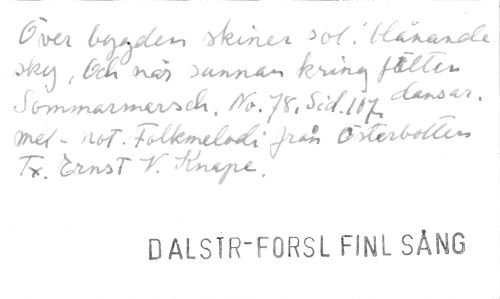 Över bygden skiner sol i blånande
sky, Och när sunnan kring fötter
dansar.
Sommarmarsch. No. 78. Sid. 107.
mel-not. Folkmelodi från Österbotten
Tx. Ernst V. Knape.
DALSTR-FORSL FINL SÅNG